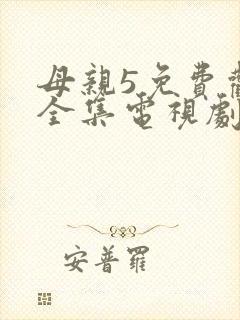 母親5免費
全集電視劇
安普羅